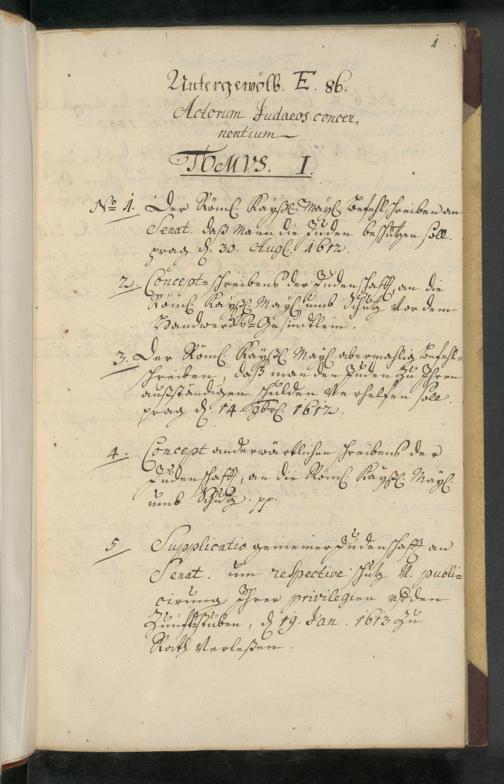 1
Untergewölb. E. 86.
Actorum Judaeos concer-
nentium
TOMVS. I.
No 1. Der Röml. Kaysl. Mayl. Befehlschreiben an
Senat. daß Mann die Juden beschützen soll.
prag d. 30. Augl. 1612.
2. Concept-schreibens der Judenschafft, an die
Röml. Kaysl. Mayl. umb Schutz vor dem
Handwercks-Gesindlein.
3. Der Röml. Kaysl. Mayl. abermahlig Befehl-
schreiben, daß man den Juden zu Ihren
außständigen schulden Verhelfen soll.
prag d. 14. 9brl. 1612.
4. Concept anderwärtlichen schreibens der
Judenschafft, an die Röml. Kaysl. Mayl.
umb Schutz. pp.
5 Supplicatio gemeiner Judenschafft an
Senat. um respective schutz u. publi-
cirung Ihrer privilegien uf den
Zunfft-stuben, d. 19. Jan. 1613 zu
Rath Verleßen.